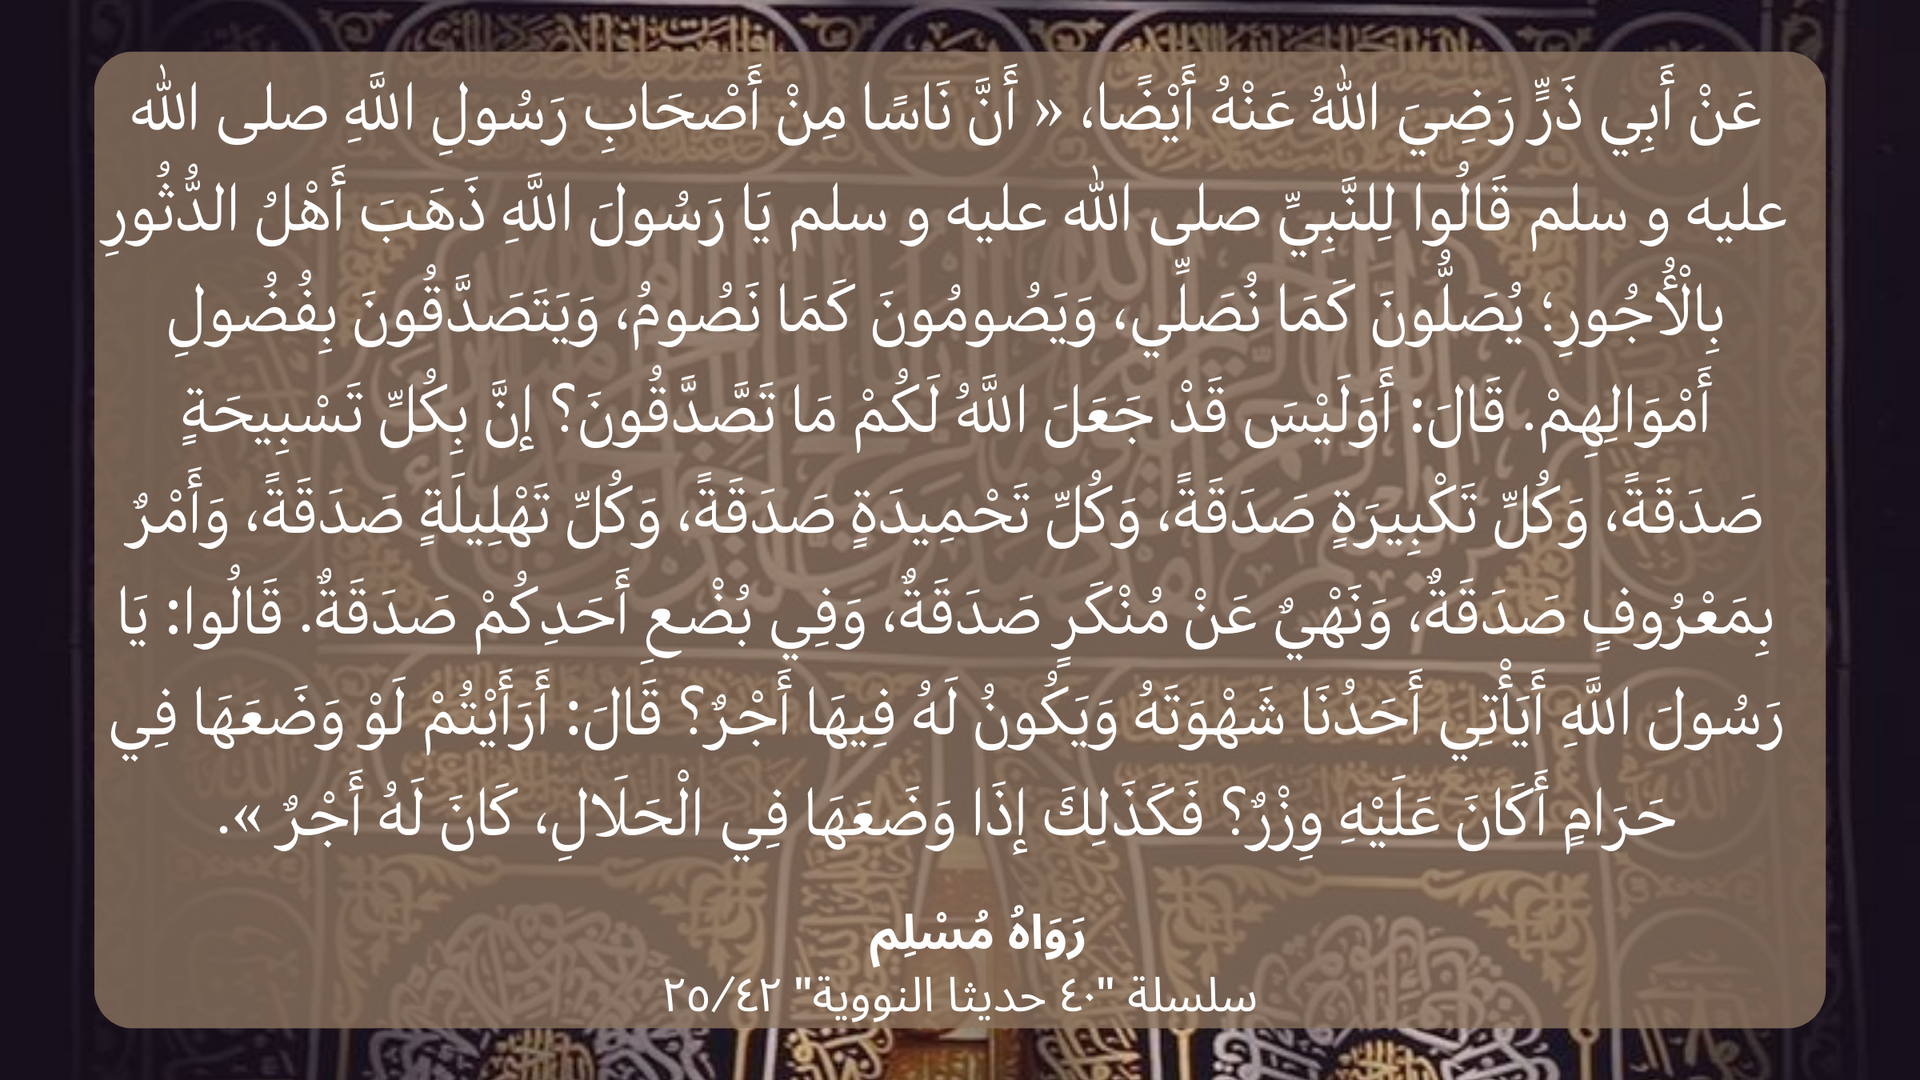 عَنْ أَبِي ذَرٍّ رَضِيَ اللهُ عَنْهُ أَيْضًا، « أَنَّ نَاسًا مِنْ أَصْحَابِ رَسُولِ اللَّهِ صلى الله
عليه و سلم قَالُوا لِلنَّبِيِّ صلى الله عليه و سلم يَا رَسُولَ اللَّهِ ذَهَبَ أَهْلُ الدُّثُورِ
بِالْأُجُورِ؛ يُصَلُّونَ كَمَا نُصَلِّي، وَيَصُومُونَ كَمَا نَصُومُ، وَيَتَصَدَّقُونَ بِفُضُولِ
أَمْوَالِهِمْ. قَالَ: أَوَلَيْسَ قَدْ جَعَلَ اللَّهُ لَكُمْ مَا تَصَّدَّقُونَ؟ إنَّ بِكُلِّ تَسْبِيحَةٍ
صَدَقَةً، وَكُلِّ تَكْبِيرَةٍ صَدَقَةً، وَكُلِّ تَحْمِيدَةٍ صَدَقَةً، وَكُلِّ تَهْلِيلَةٍ صَدَقَةً، وَأَمْرٌ
بِمَعْرُوفٍ صَدَقَةٌ، وَنَهْيٌ عَنْ مُنْكَرٍ صَدَقَةٌ، وَفِي بُضْعِ أَحَدِكُمْ صَدَقَةٌ. قَالُوا: يَا
رَسُولَ اللَّهِ أَيَأْتِي أَحَدُنَا شَهْوَتَهُ وَيَكُونُ لَهُ فِيهَا أَجْرٌ؟ قَالَ: أَرَأَيْتُمْ لَوْ وَضَعَهَا فِي
حَرَامٍ أَكَانَ عَلَيْهِ وِزْرٌ؟ فَكَذَلِكَ إذَا وَضَعَهَا فِي الْحَلَالِ، كَانَ لَهُ أَجْرٌ ».
رَوَاهُ مُسْلِم
سلسلة "٤٠ حديثا النووية" ٢٥/٤٢